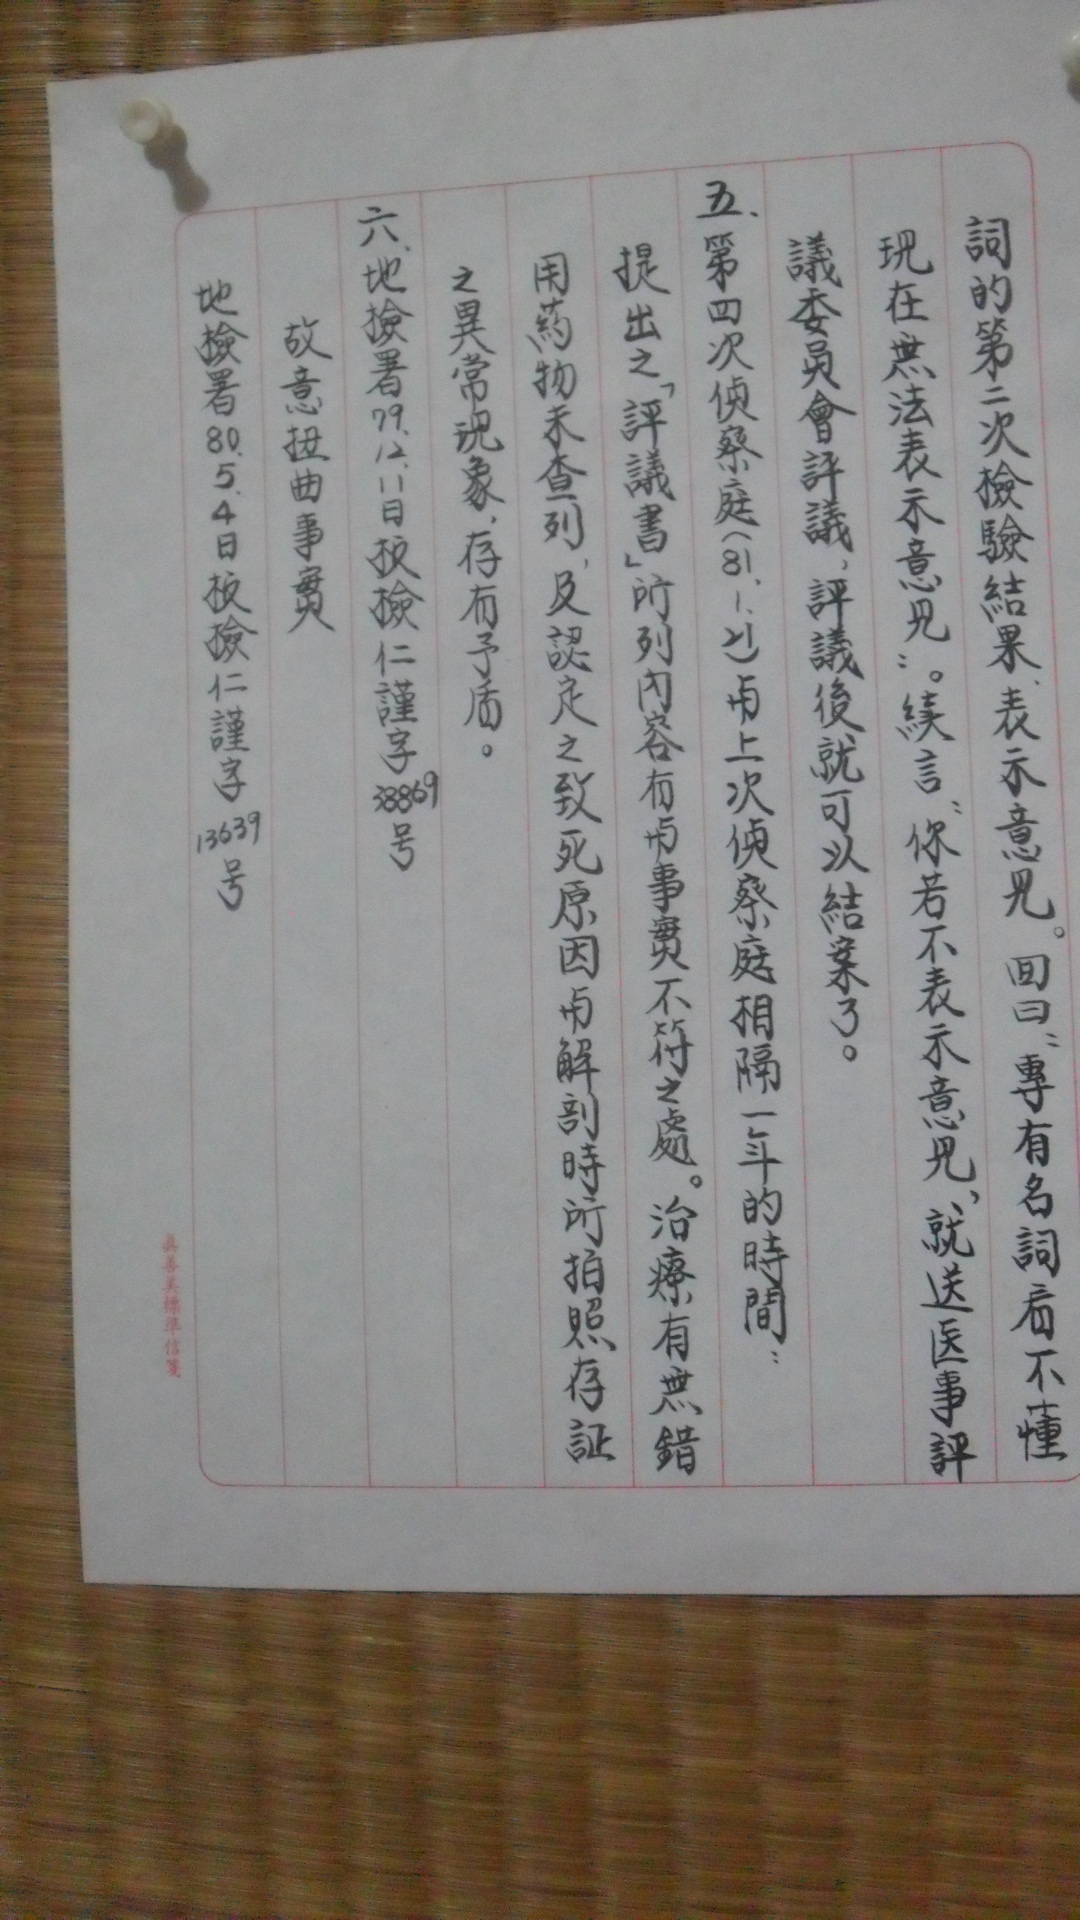 詞的第二次檢驗結果、表示意見。回曰:專有名詞看不懂
現在無法表示意見:。續言:你若不表示意見、就送医事評
議委員會評議,評議後就可以結案了。
五、第四次偵察庭(81.1.21)与上次偵察庭相隔一年的時間:
提出之「評議書」所列內容有与事實不符之處。治療有無錯
用葯物未查列,及認定之致死原因与解剖時所拍照存証
之異常現象,存有予盾。
六、地檢署79.12.11日板檢仁謹字38869号
故意扭曲事實
地檢署80.5.4日板檢仁謹字13639号
真善美標準信箋